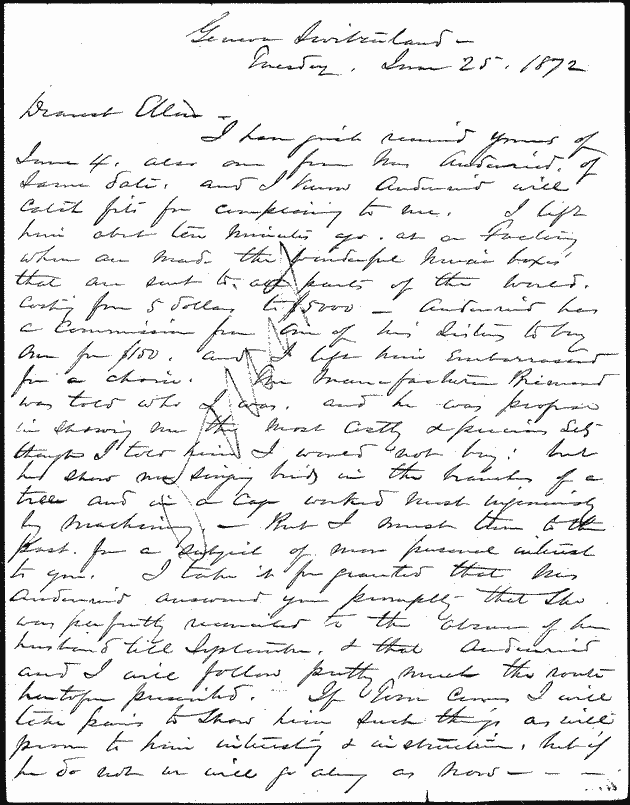 Geneva Switzerland -
Tuesday, June 25. 1872
Dearest Ellen -
I have just received yours of
June 4. also one from Mrs Audenried, of
same date. and I know Audenried will
catch fits for complaining to me. I left
him about ten minutes ago. at a Factory
where are made the wonderful Music boxes
that are sent to all parts of the world.
Costing from 5 dollars to $5000 - Audenried has
a Commission from one of his Sisters to buy
one for $100. and I left him Embarrassed
for a choice. The Manufacturer
was told who I was. and he was profuse
in showing me the most costly & precious Sets
though I told him I would not buy: but
he show me singing birds in the branches of a
tree and in a cage worked most ingeniously
by machinery - But I must turn to the
past. for a subject of more personal interest
to you. I take it for granted that Mrs
Audenried answered you promptly that she
was perfectly reconciled to the absence of her
husband till September. & that Audenried
and I will follow pretty much the route
heretofore prescribed. If comes I will
take pains to show him such things as will
prove to him interesting & instructive, but if
he do not we will go along as now - - -